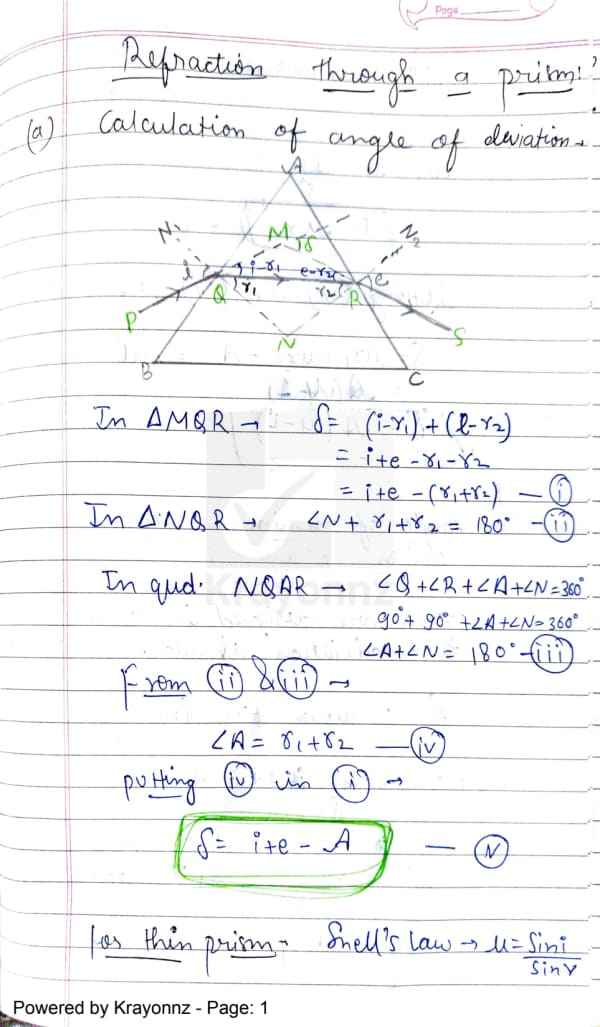 Page
Refraction through a prism:
(a) Calculation of angle of deviation→
A
N1
M
δ
N2
i
i-r1
e-r2
e
Q
r1
r2
R
P
S
N
B
C
In ΔMQR → δ= (i-r1)+(e-r2)
= i+e -r1-r2
= i+e -(r1+r2) — (i)
In ΔNQR → ∠N+ r1+r2= 180° -(ii)
In qud. NQAR → ∠Q+∠R+∠A+∠N=360°
90°+ 90° +∠A+∠N=360°
∠A+∠N= 180°-(iii)
From (ii) & (iii) →
∠A= r1+r2 —(iv)
putting (iv) in (i) →
δ= i+e - A — (V)
for thin prism→ Snell's law → μ= Sini/Sinr
Krayonnz
Powered by Krayonnz - Page: 1